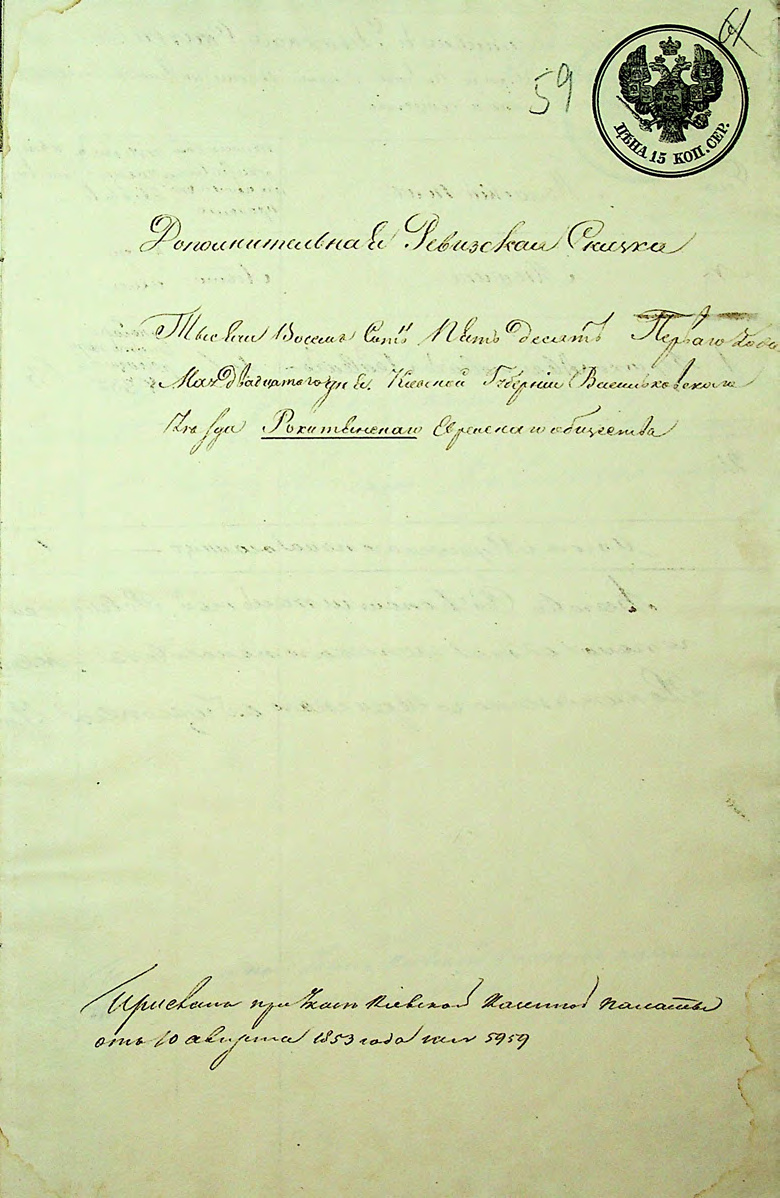 61
59
ЦѢНА 15 КОП. СЕР.
Дополнительная Ревизская Сказка
Тысяча Восемь Сотъ Пятьдесятъ Перваго Года
Мая двадцатого дня. Кіевской Губерніи Васильковского
Уѣзда Рокитянскаго Еврейскаго общества
Прислана при Указѣ Кіевской Казенной Палаты
отъ 10 августа 1853 года за № 5959